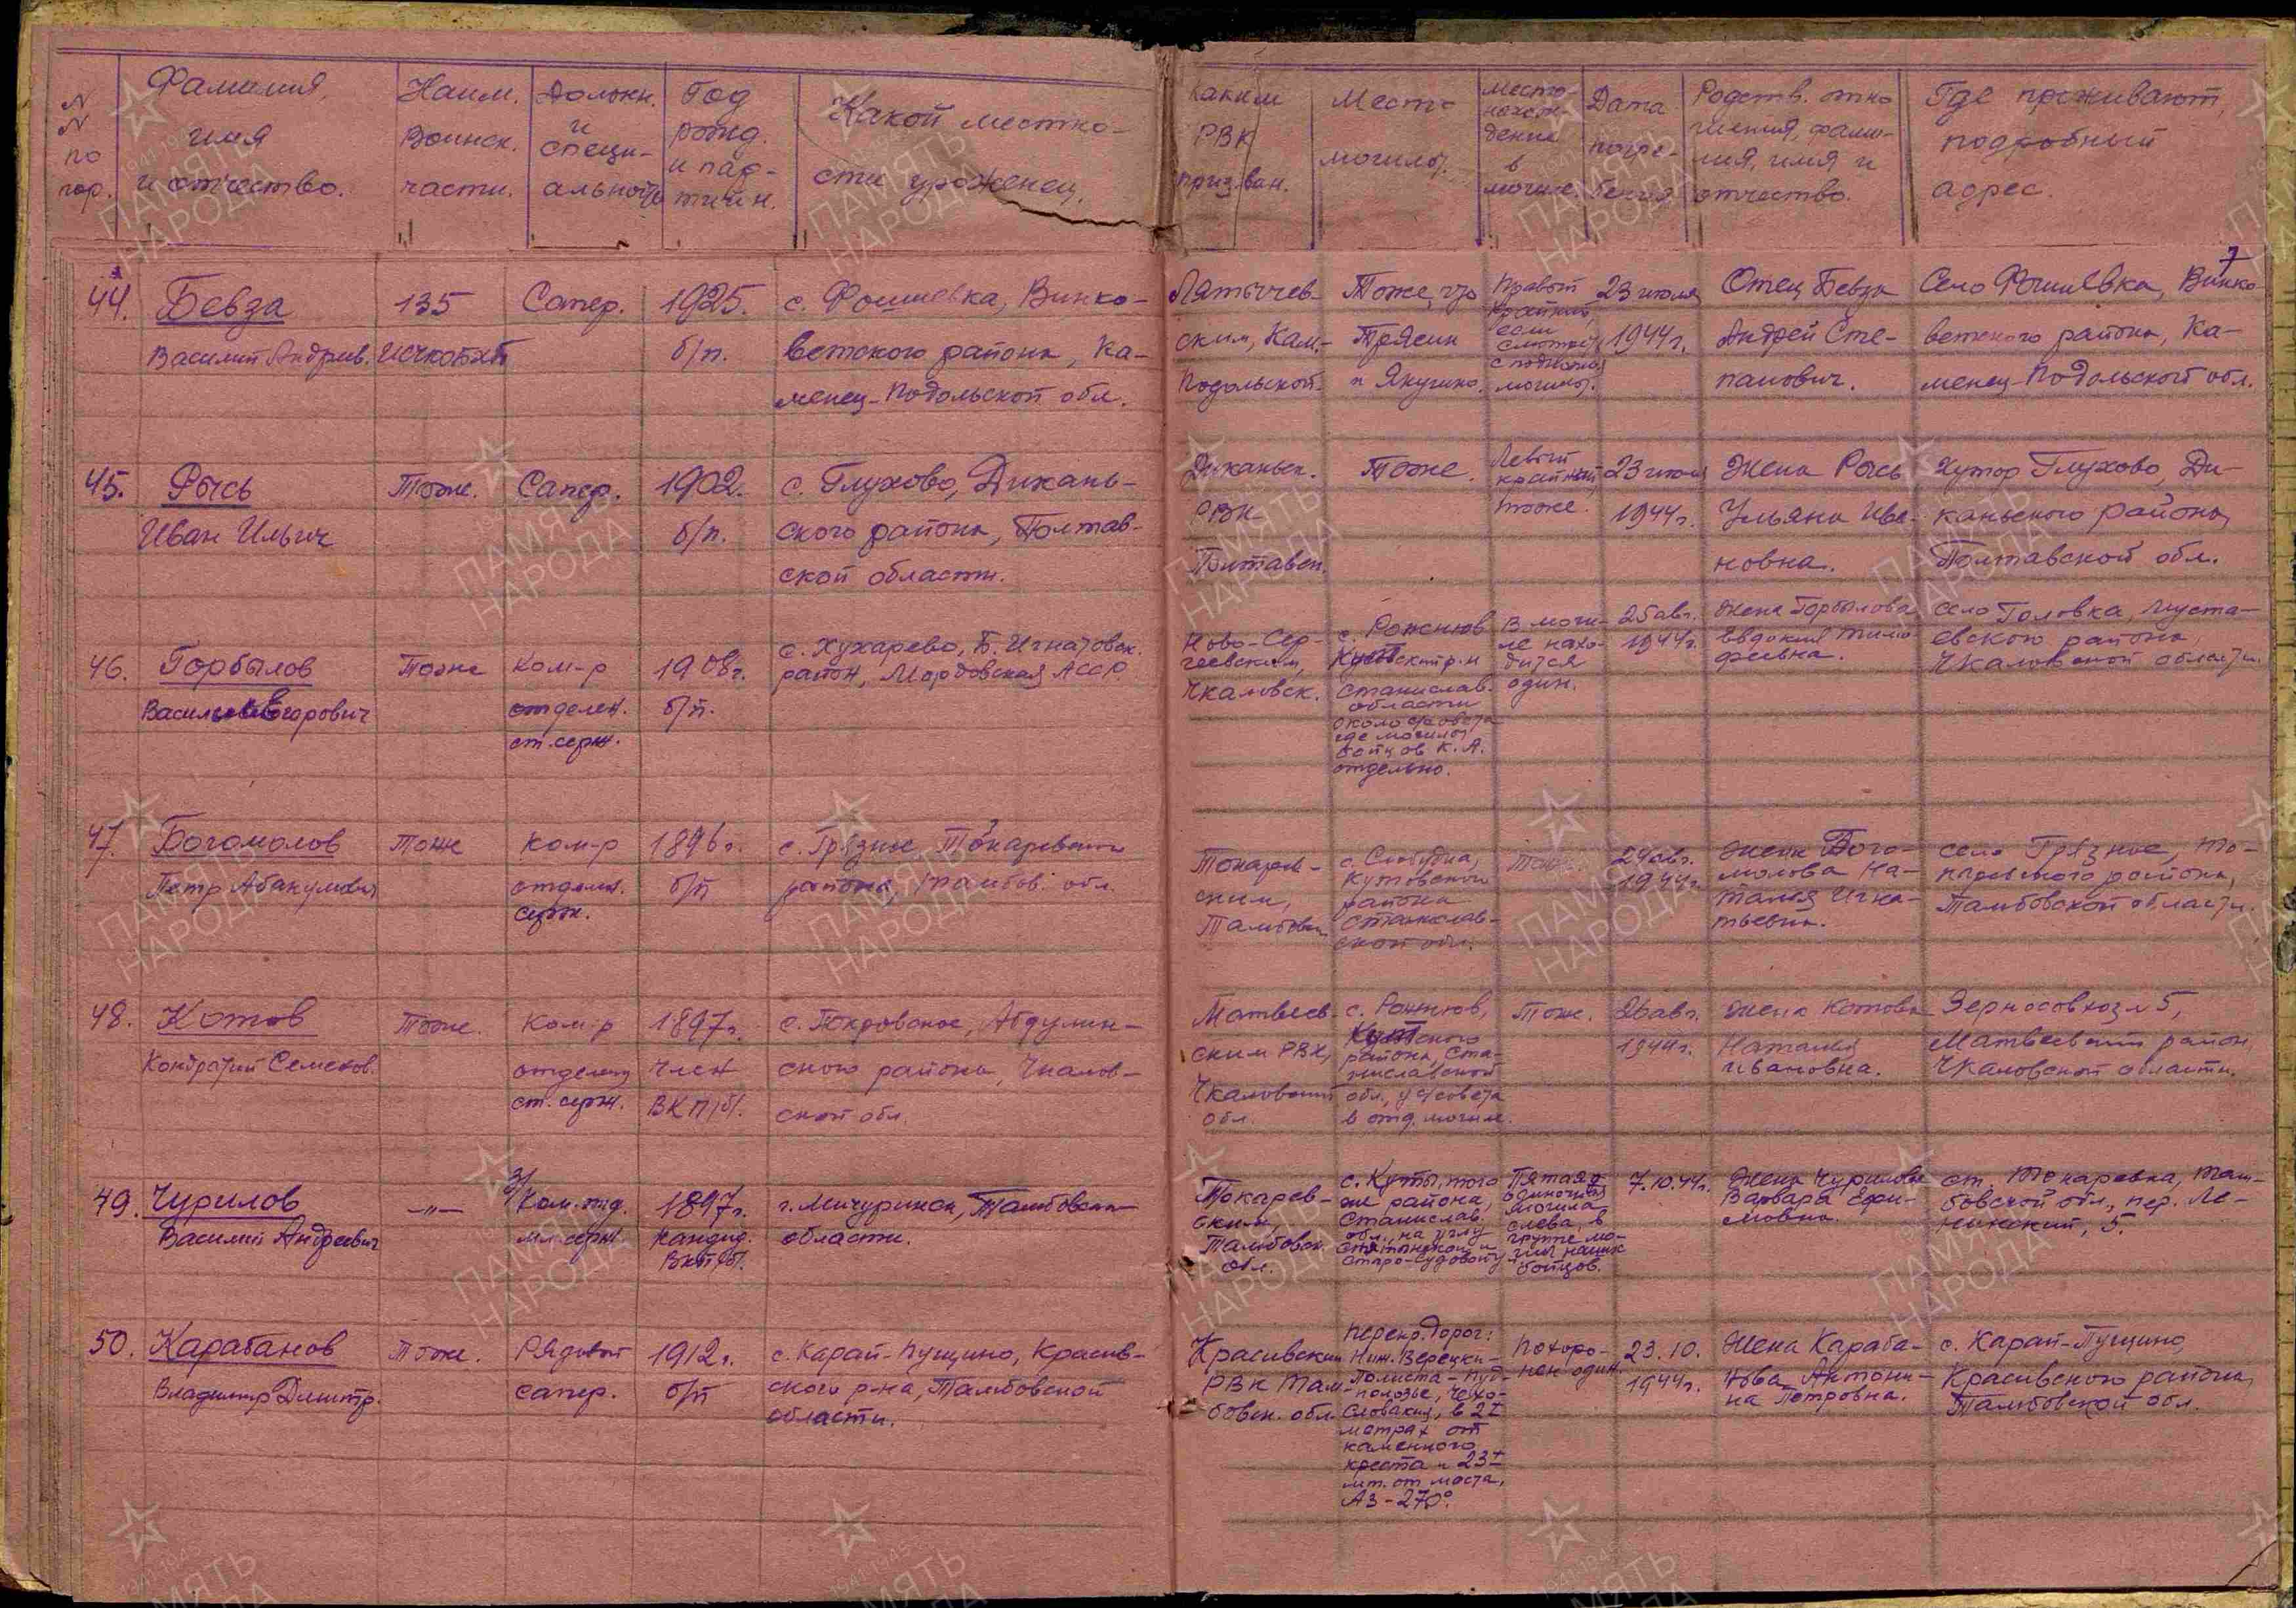 N
N
по
пор.
Фамилия,
имя
и отчество.
Наим.
Воинск.
части.
Должн.
и
специ-
альность
Год
рожд.
и пар-
тийн.
Какой местно-
сти уроженец.
Каким
РВК
призван.
Место
могилы.
Место-
нахож-
дение
в
могиле.
Дата
погре-
бения
Родств. отно
шения, фами-
лия, имя и
отчество.
Где проживают,
подробный
адрес.
7
44.
Бевза
Василий Андреев.
135
Сапер.
1925.
б/п.
с. Фошиевка, Винко-
вецкого района, Ка-
менец-Подольской обл.
Летичев-
ским, Кам.-
Подольской.
Тоже, что
Трясин
и Якушко.
Правый
крайний,
если
смотреть
с подножия
могилы.
23 июля
1944г.
Отец Бевза
Андрей Сте-
панович.
Село Фошиевка, Винко
вецкого района, Ка-
менец-Подольской обл.
45.
Рысь
Иван Ильич
Тоже.
Сапер.
1902.
б/п.
с. Глухово, Дикань-
ского района, Полтав-
ской области.
Диканьск.
РВК
Полтавск.
Тоже.
Левый
крайний,
тоже.
23 июля
1944г.
Жена Рысь
Ульяна Ива-
новна.
Хутор Глухово, Ди-
каньского района,
Полтавской обл.
46.
Горбылов
Василий Егорович
Тоже
Ком-р
отделен.
ст. серж.
1908г.
б/п.
с. Кухарево, Б. Игнатовск.
район, Мордовская АССР
Ново-Сер-
геевским,
Чкаловск.
с. Рожнюв
Кутский р-н
Станислав.
области
около с/совета
где могилы
бойцов К. А.
отдельно.
В моги-
ле нахо-
дится
один.
25 авг.
1944г.
Жена Горбылова
Евдокия Тимо
феевна.
село Головка, Муста-
евского района,
Чкаловской области.
47.
Богомолов
Петр Абакумович
Тоже
Ком-р
отделен.
серж.
1896г.
б/п
с. Грязное, Токаревского
района, Тамбов. обл.
Токарев-
ским,
Тамбовск.
с. Слободка,
Кутовского
района
Станислав-
ской обл.
Тоже.
24 авг.
1944г.
Жена Бого-
молова На-
талья Игна-
тьевна.
село Грязное, То-
каревского района,
Тамбовской области.
48.
Котов
Кондратий Семенов.
Тоже.
Ком-р
отделен
ст. серж.
1897г.
член
ВКП/б/.
с. Покровское, Абдулин-
ского района, Чкалов-
ской обл.
Матвеев-
ским РВК,
Чкаловской
обл.
с. Рожнюв,
Кутского
района, Ста-
ниславской
обл., у с/совета
в отд. могиле.
Тоже.
26 авг.
1944г.
Жена Котова
Наталья
Ивановна.
Зерносовхоз 5,
Матвеевский район,
Чкаловской области.
49.
Чурилов
Василий Андреевич
-"-
Ком. отд.
мл. серж.
1897г.
Кандид.
ВКП/б/.
г. Мичуринск, Тамбовской
области.
Токарев-
ским,
Тамбовск.
обл.
с. Куты, того
же района,
Станислав.
обл., на углу
Снятынской и
Старо-Судовой
Пятая
одиночная
могила
слева, в
группе мо-
гил наших
бойцов.
7.10.44г.
Жена Чурилова
Варвара Ефи-
мовна.
ст. Токаревка, Там-
бовской обл., пер. Ле-
нинский, 5.
50.
Карабанов
Владимир Дмитр.
Тоже.
Рядовой
сапер.
1912г.
б/п
с. Карай-Пущино, Красив-
ского р-на, Тамбовской
области.
Красивским
РВК Там-
бовск. обл.
Перекр. дорог:
Ниж. Верецки-
Полиста-Пуд-
полозье, Чехо-
словакия, в 21
метрах от
каменного
креста и 23
мт. от моста,
Аз-270°.
Похоро-
нен один.
23.10.
1944г.
Жена Караба-
нова Антони-
на Петровна.
с. Карай-Пущино,
Красивского района,
Тамбовской обл.